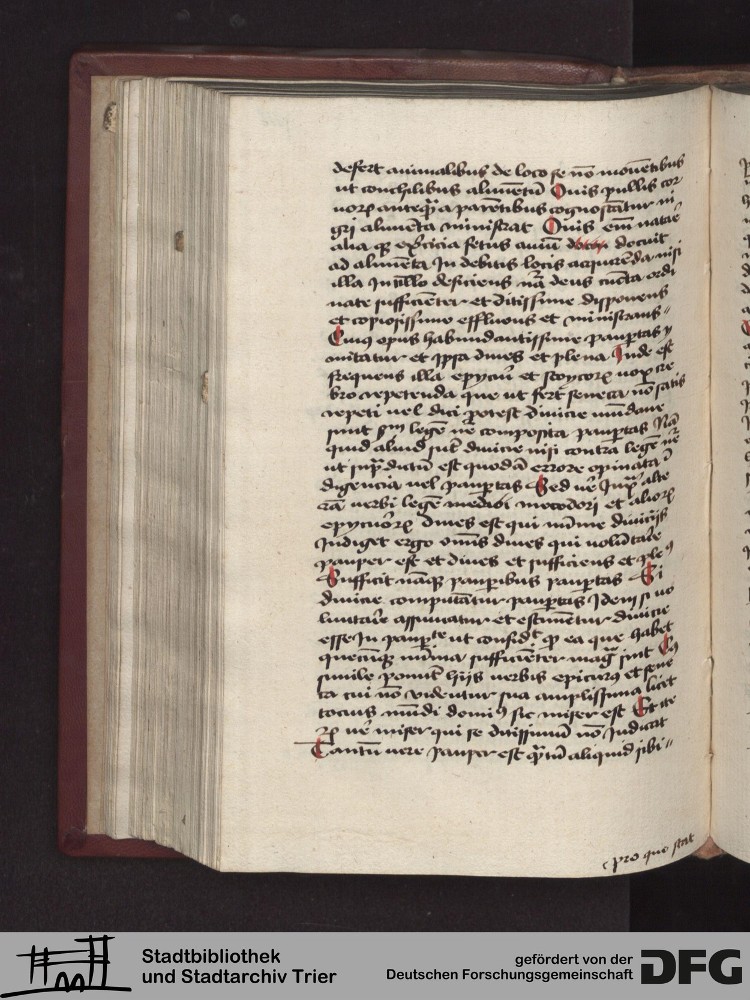 defert animalibus de loco se nō mouētibus
ut conchilibus alimētū Quis pullis cor
uorꝝ anteq̄ a parētibus cognoscātur ni
gri alimēta ministrat Quis em̄ natā
alia que exercicia fetus auiū docuit
ad alimēta In debitis locis acquirēda nisi
illa In illo deficiens nā deus cūcta ordi
nate sufficiēter et ditissime disponens
et copiosissime effluens et ministrans
Cuius opus habundantissime paupertas
imitatur et ipsa diues et plena Inde est
frequens illa epycuri et stoycorꝝ uox cre
bro repetenda que ut fert seneca nō satis
repeti uel dici potest diuicie mūdane
sunt scdm legē nē composita paupertas Nā
quid aliud sūt diuicie nisi contra legē nē
ut supra dictū est quodā errore opinata ī
digencia uel paupertas Sed uē Iuxta alte
rā uerbi legē metodori et aliorꝝ
epycuorꝝ diues est qui minime diuicijs
Indiget ergo omīs diues qui uolūtarie
pauper est et diues et sufficiens et plenus
Sufficit nāque pauperibus paupertas Si
diuicie computātur paupertas Idem si uo
luntarie assumatur et estimētur diuicie
esse In paupertate ut confidat quod ea que habet
quecūque minima sufficiēter magna sint Cui
simile ponūt hijs uerbis epicurus et sene
ca cui nō uidentur sua amplissima licet
tocius mūdi dominus sit miser est Et ite
rū uē miser qui se ditissimū nō Iudicat
Tantū uere pauper est quātū aliquid sibi
pro quo stat
Stadtbibliothek
und Stadtarchiv Trier
gefördert von der
Deutschen Forschungsgemeinschaft
DFG